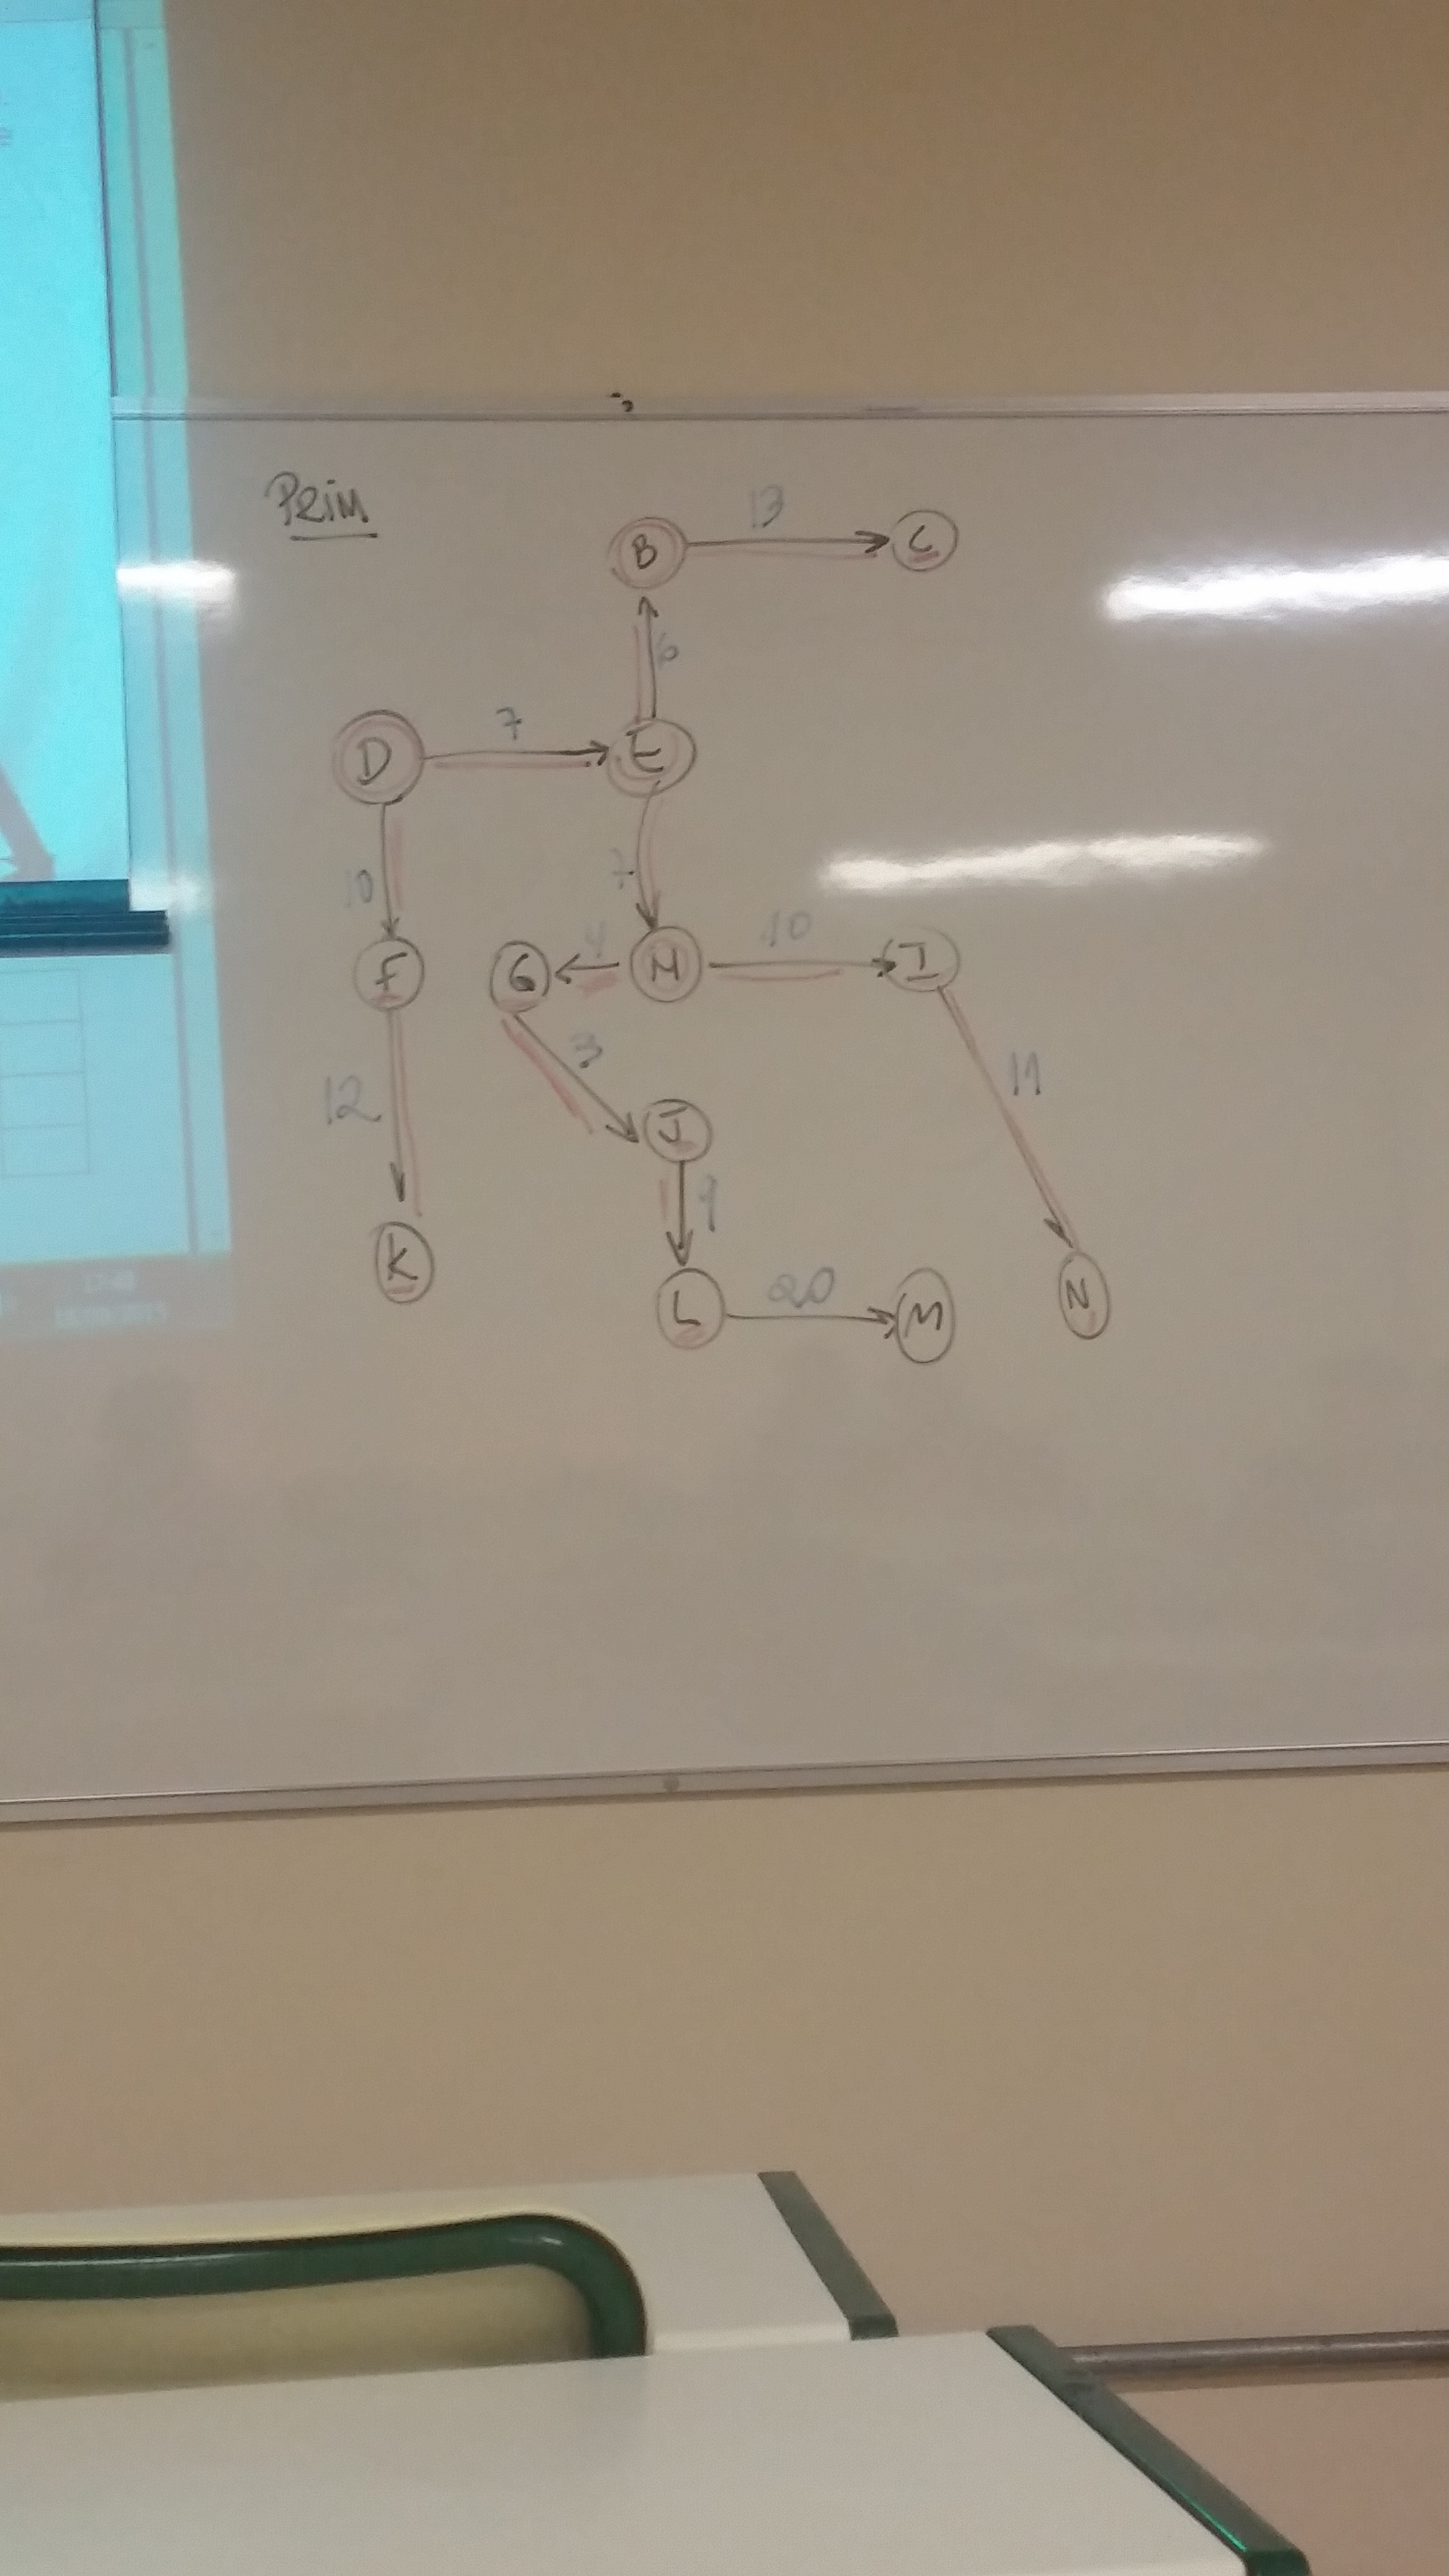 Prim
B 13 C
6
D 7 E
10 7
F G 4 H 10 I
3
12 J 11
9
K L 20 M N